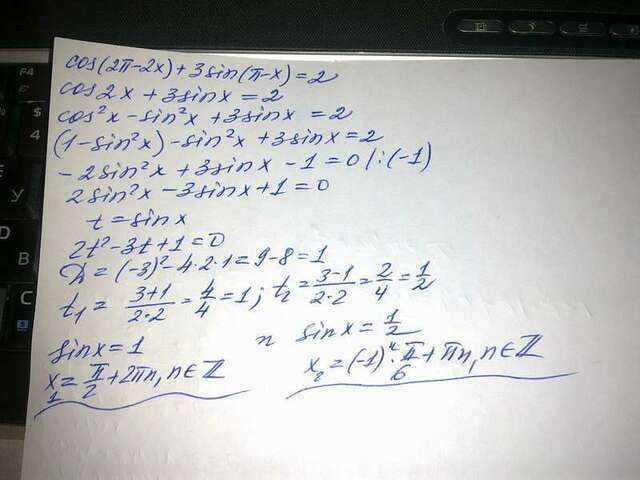 cos(2π-2x)+3sin(π-x)=2
cos2x+3sinx=2
cos²x-sin²x+3sinx=2
(1-sin²x)-sin²x+3sinx=2
-2sin²x+3sinx-1=0/:(-1)
2sin²x-3sinx+1=0
t=sinx
2t²-3t+1=0
D=(-3)²-4·2·1=9-8=1
t₁=(3+1)/(2·2)=4/4=1; t₂=(3-1)/(2·2)=2/4=1/2
sinx=1 и sinx=1/2
x₁=π/2+2πn, n∈ℤ x₂=(-1)ⁿ·π/6+πn, n∈ℤ
F4
$
4
E
У
D
В
C